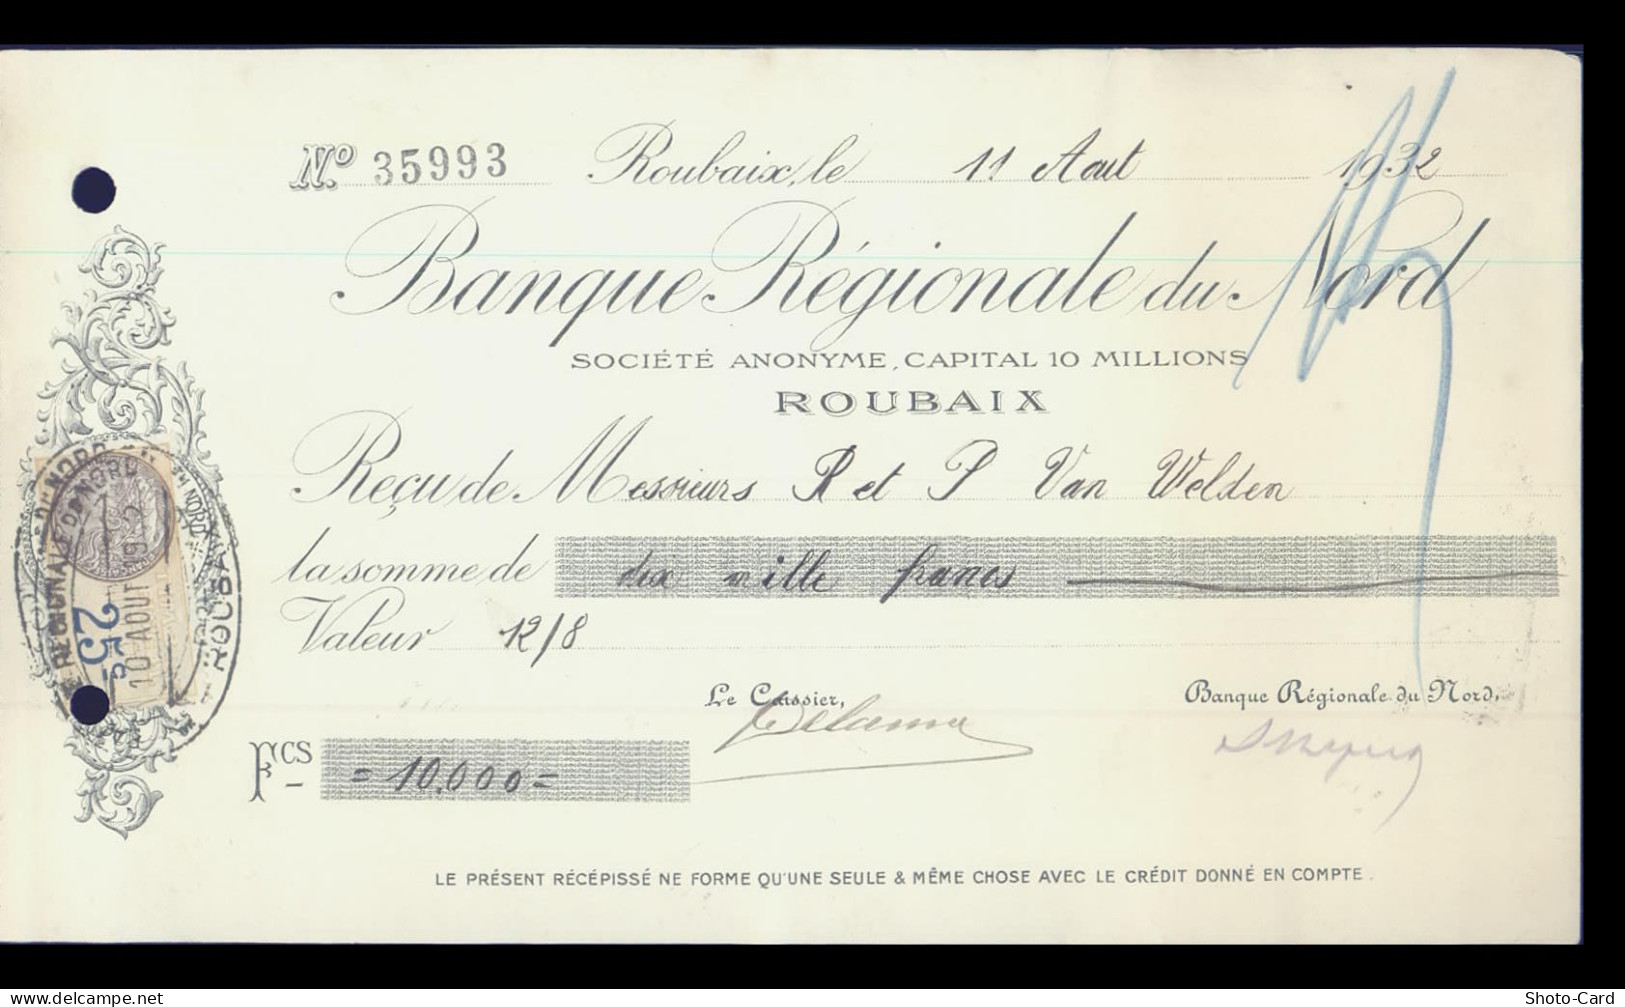 Nº 35993 Roubaix, le 11 Aout 1932
Banque Régionale du Nord
SOCIÉTÉ ANONYME, CAPITAL 10 MILLIONS
ROUBAIX
Reçu de Messieurs R et P Van Welden
la somme de dix mille francs
Valeur 12/8
Le Caissier, Banque Régionale du Nord,
Fcs = 10.000 =
LE PRÉSENT RÉCÉPISSÉ NE FORME QU'UNE SEULE & MÊME CHOSE AVEC LE CRÉDIT DONNÉ EN COMPTE.
RÉGIONALE DU NORD
ROUBAIX
10 AOUT
25c
www.delcampe.net Shoto-Card